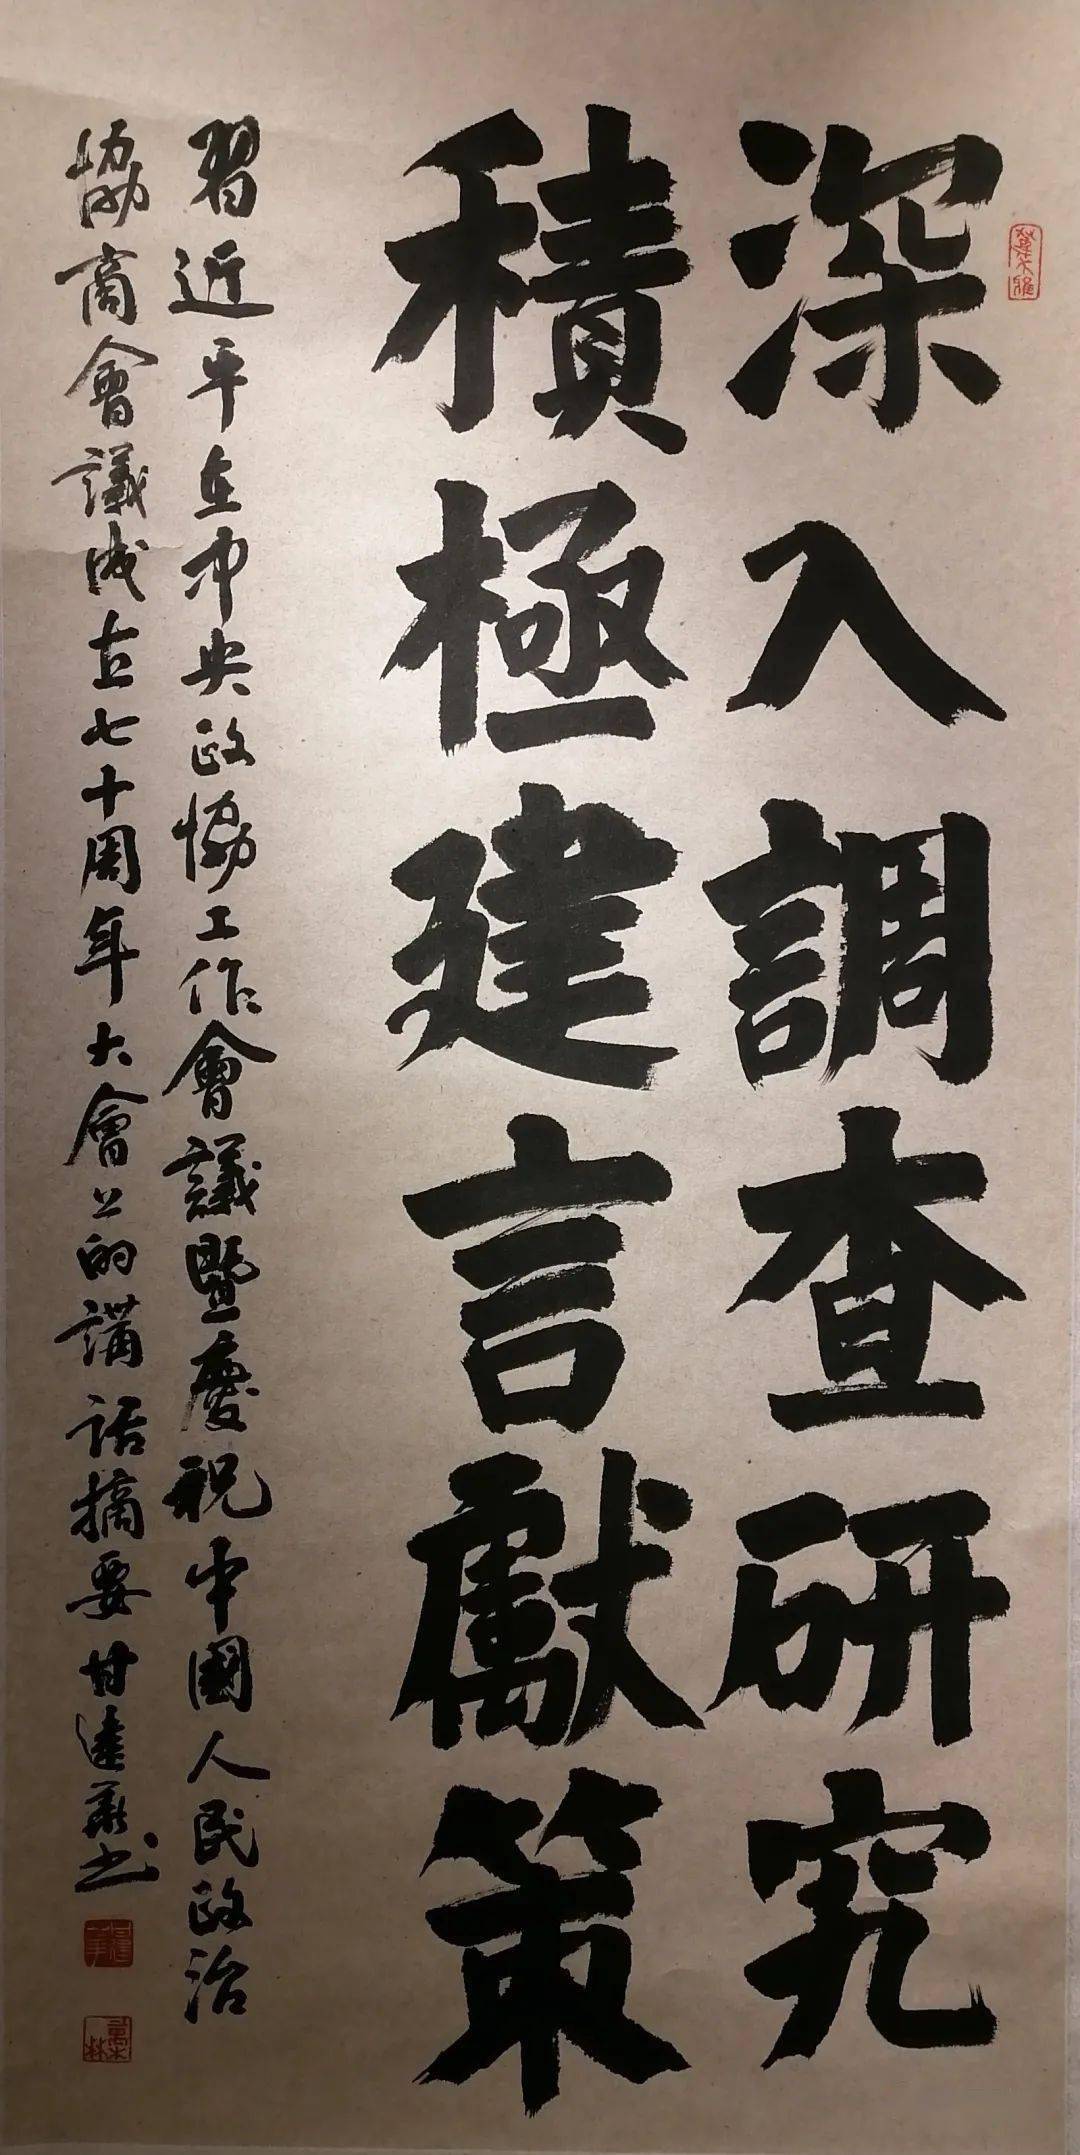 深入調查研究
積極建言獻策
習近平在中央政協工作會議暨慶祝中國人民政治
協商會議成立七十周年大會上的講話摘要 甘建華書